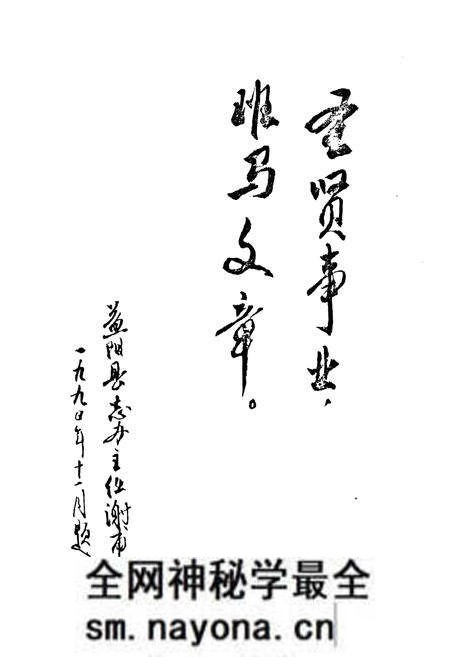 圣贤事业，
班马文章。
益阳县志办主任谢南
一九九〇年十一月题
全网神秘学最全
sm.nayona.cn